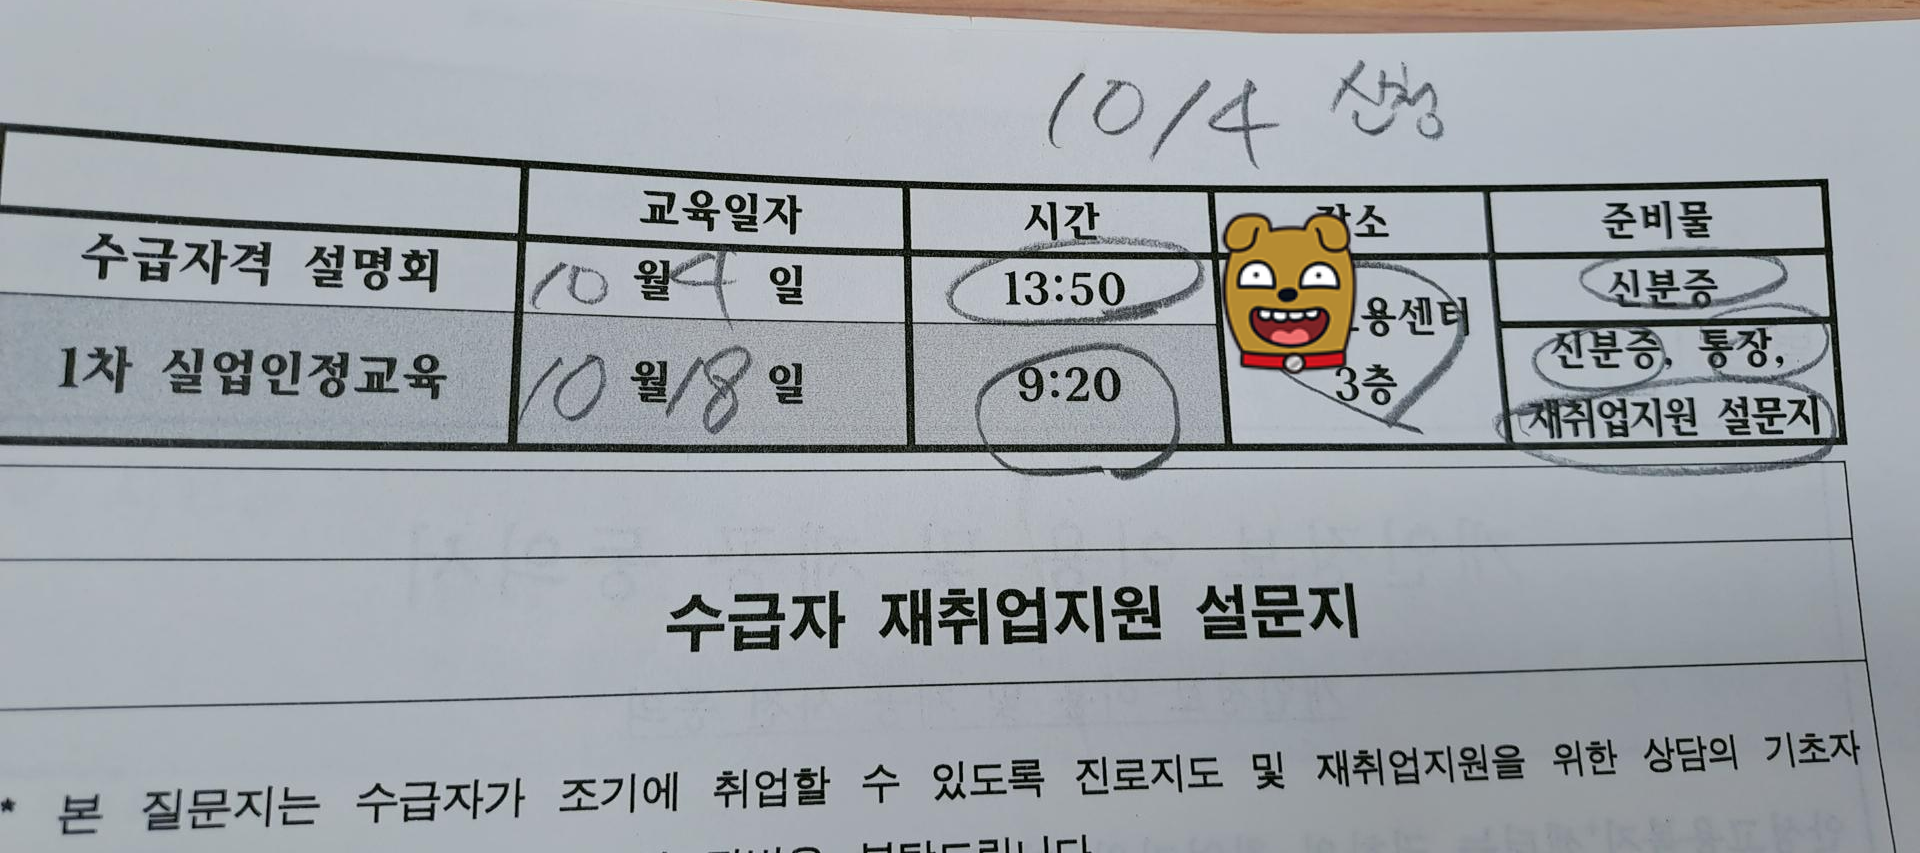 10/4 신청
교육일자 시간 장소 준비물
수급자격 설명회 10월 4일 13:50 신분증
1차 실업인정교육 10월 18일 9:20 용센터 3층 신분증, 통장,
재취업지원 설문지
수급자 재취업지원 설문지
* 본 질문지는 수급자가 조기에 취업할 수 있도록 진로지도 및 재취업지원을 위한 상담의 기초자